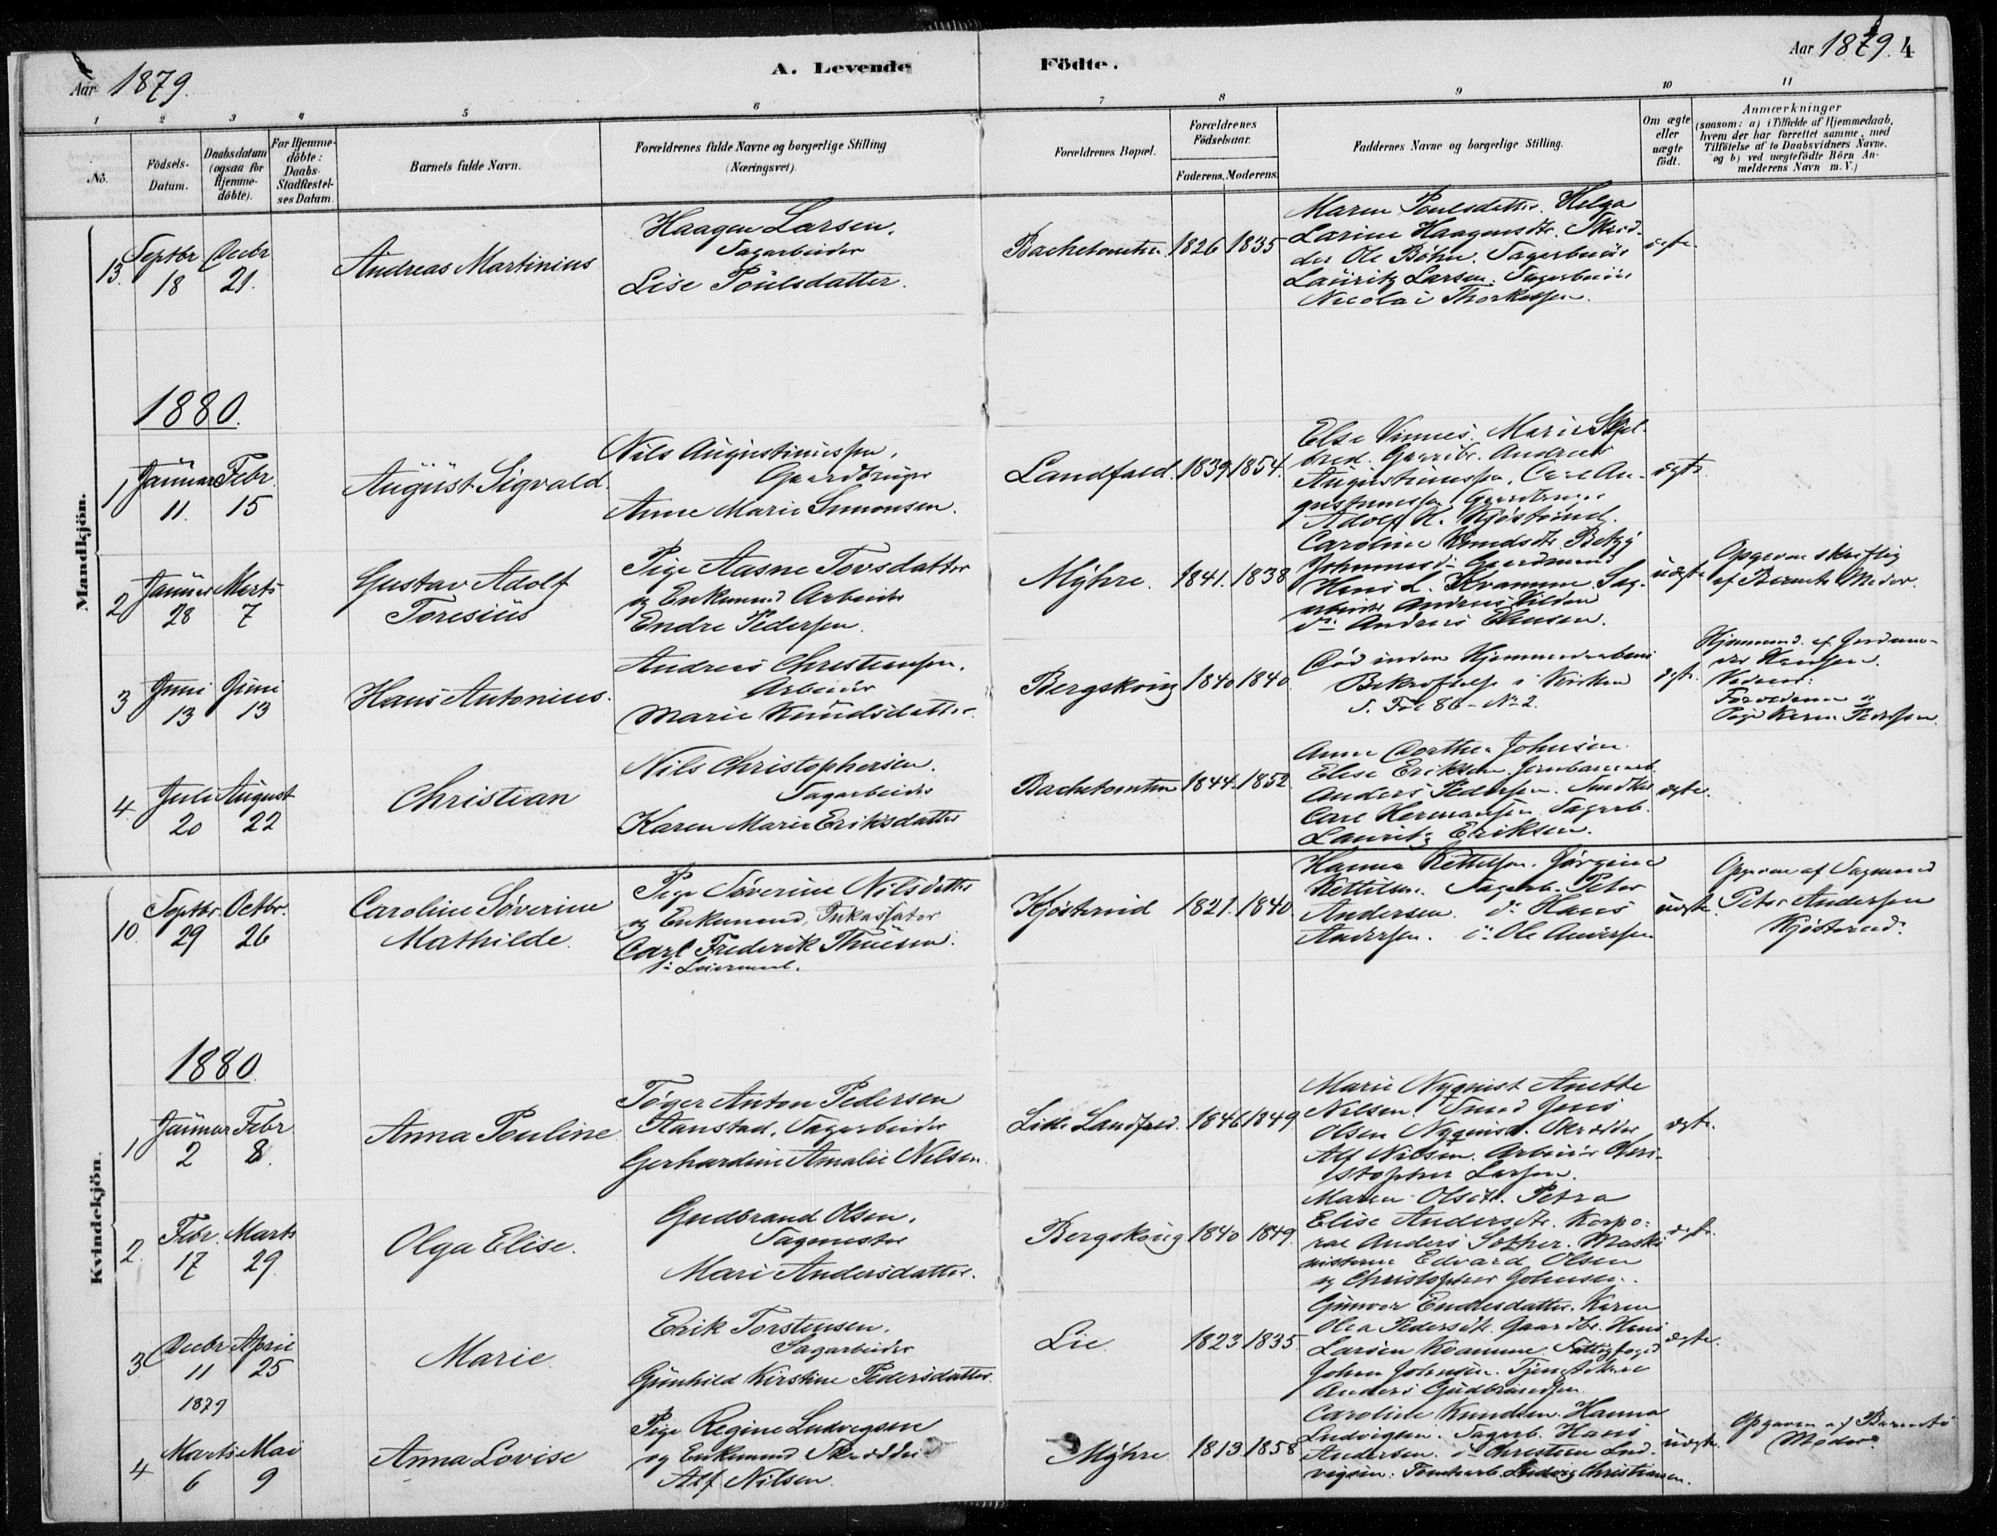 Aar 1879.
A. Levende Födte.
Aar 1879. 4
1 2 3 4 5 6 7 8 9 10 11
No.
Födsels-Datum.
Daabsdatum (ogsaa for Hjemme-döbte).
For Hjemme-döbte: Daabs-Stadfæstel-ses Datum.
Barnets fulde Navn.
Forældrenes fulde Navne og borgerlige Stilling (Næringsvei).
Forældrenes Bopæl.
Forældrenes Födselsaar.
Faderens. Moderens.
Faddernes Navne og borgerlige Stilling.
Om ægte eller uægte födt.
Anmærkninger
(saasom: a) i Tilfælde af Hjemmedaab, hvem der har forrettet samme, med Tilföielse af to Daabsvidners Navne, og b) ved uægtefödte Börn An-melderens Navn m. V.)
Mandkjön.
13. Septbr 18 Decbr 21.
Andreas Martinius
Haagen Larsen.
Sagarbeider
Lise Poulsdatter.
1826 1835
Maren Poulsdatter. Helga
Larine Haagensdtr.
Ole Böhn.
Lauritz Larsen.
Nicolai
ægte.
1880.
1 Januar 11. Febr. 15
August Sigvald.
Nils Augustinussen,
Gaardbruger
Anne Marie Simonsen.
Landfald. 1839 1854.
Else Marie
Andreas
Augustinussen, Carl Au-
gustinussen Gaardbruger
Adolf H. Kjösterud.
ægte.
2 Januar 28 Marts 7
Gustav Adolf
Toresius
Pige Aasne Tovsdatter
og Enkemand Arbeider
Endre Pedersen.
Myhre. 1841. 1838
Caroline Knudsdtr
Hans L. Kvamme. Sag-
arbeider Andreas
do Andreas Hansen.
uægte
Opgiven skriftlig
af Barnets Moder.
3 Juni 13 Juni 13
Hans Antonius.
Andreas Christensen.
Arbeider
Marie Knudsdatter.
Bergskoug 1840 1840.
Död inden Hjemmedaabens
Bekræftelse i Kirken
s. Fol 86 - No 2.
ægte.
Hjemmed. af
Hansen.
Forældrene
Pige Karen Pedersen.
4 Juli 20 August 22
Christian
Nils Christophersen.
Sagarbeider
Karen Marie Eriksdatter
Bachetomten 1844. 1852
Anne Dorthea Johnsen.
Elise Eriksen. Jernbanearb.
Anders Pedersen.
Carl Hermansen. Sagarb.
Lauritz Eriksen.
ægte.
Kvindekjön.
10. Septbr. 29 Octbr. 26
Caroline Söverine
Mathilde.
Pige Söverine Nilsdatter
og Enkemand, Inkassator
Carl Frederik Thuesen.
Kjösterud 1821. 1840.
Hanna Kettelsen. Jörgine
Kettilsen. Sagarb. Peter
Andersen. do Hans
Andersen. do Ole Andersen
uægte.
Opgiven af Sagmand
Peter Andersen
Kjösterud.
1880.
1 Januar 2 Febr 8.
Anna Pouline
Töger Anton Pedersen
Aanstad. Sagarbeider
Gerhardine Amalie Nilsen.
Lille Landfald. 1846 1849
Marie Nyquist Anette
Nilsen. Smed Jens
Olsen Nyquist. Skrædder
Alf Nilsen. Arbeider Chri-
stopher Larsen.
ægte.
2. Febr. 17 Marts 29.
Olga Elise.
Gudbrand Olsen.
Sagmester
Mari Andersdatter.
Bergskoug 1840 1849.
Maren Olsdtr. Petra
Elise Andersdtr. Korpo-
ral Anders Maski-
nisterne Edvard Olsen
og Christopher Johnsen.
ægte.
3 Decbr 11 1879 April 25
Marie.
Erik Torstensen.
Sagarbeider
Gunhild Kirstine Pedersdatter.
Lie. 1823 1835
Gunvor Endresdatter. Karen
Olea Pedersdtr. Gaardbr. Hans
Larsen Kvamme. Fattigfoged
Johan Johnsen.
Anders Gudbrandsen.
ægte.
4 Marts 6 Mai 9
Anna Lovise
Pige Regine Ludvigsen
og Enkemand Skrædder
Alf Nilsen.
Myhre 1813. 1858
Caroline Knudsen. Hanna
Ludvigsen. Sagarb. Hans
Andersen. do Christian Lud-
vigsen. Tomtearb. Ludvig Christiansen.
uægte.
Opgiven af Barnets
Moder.